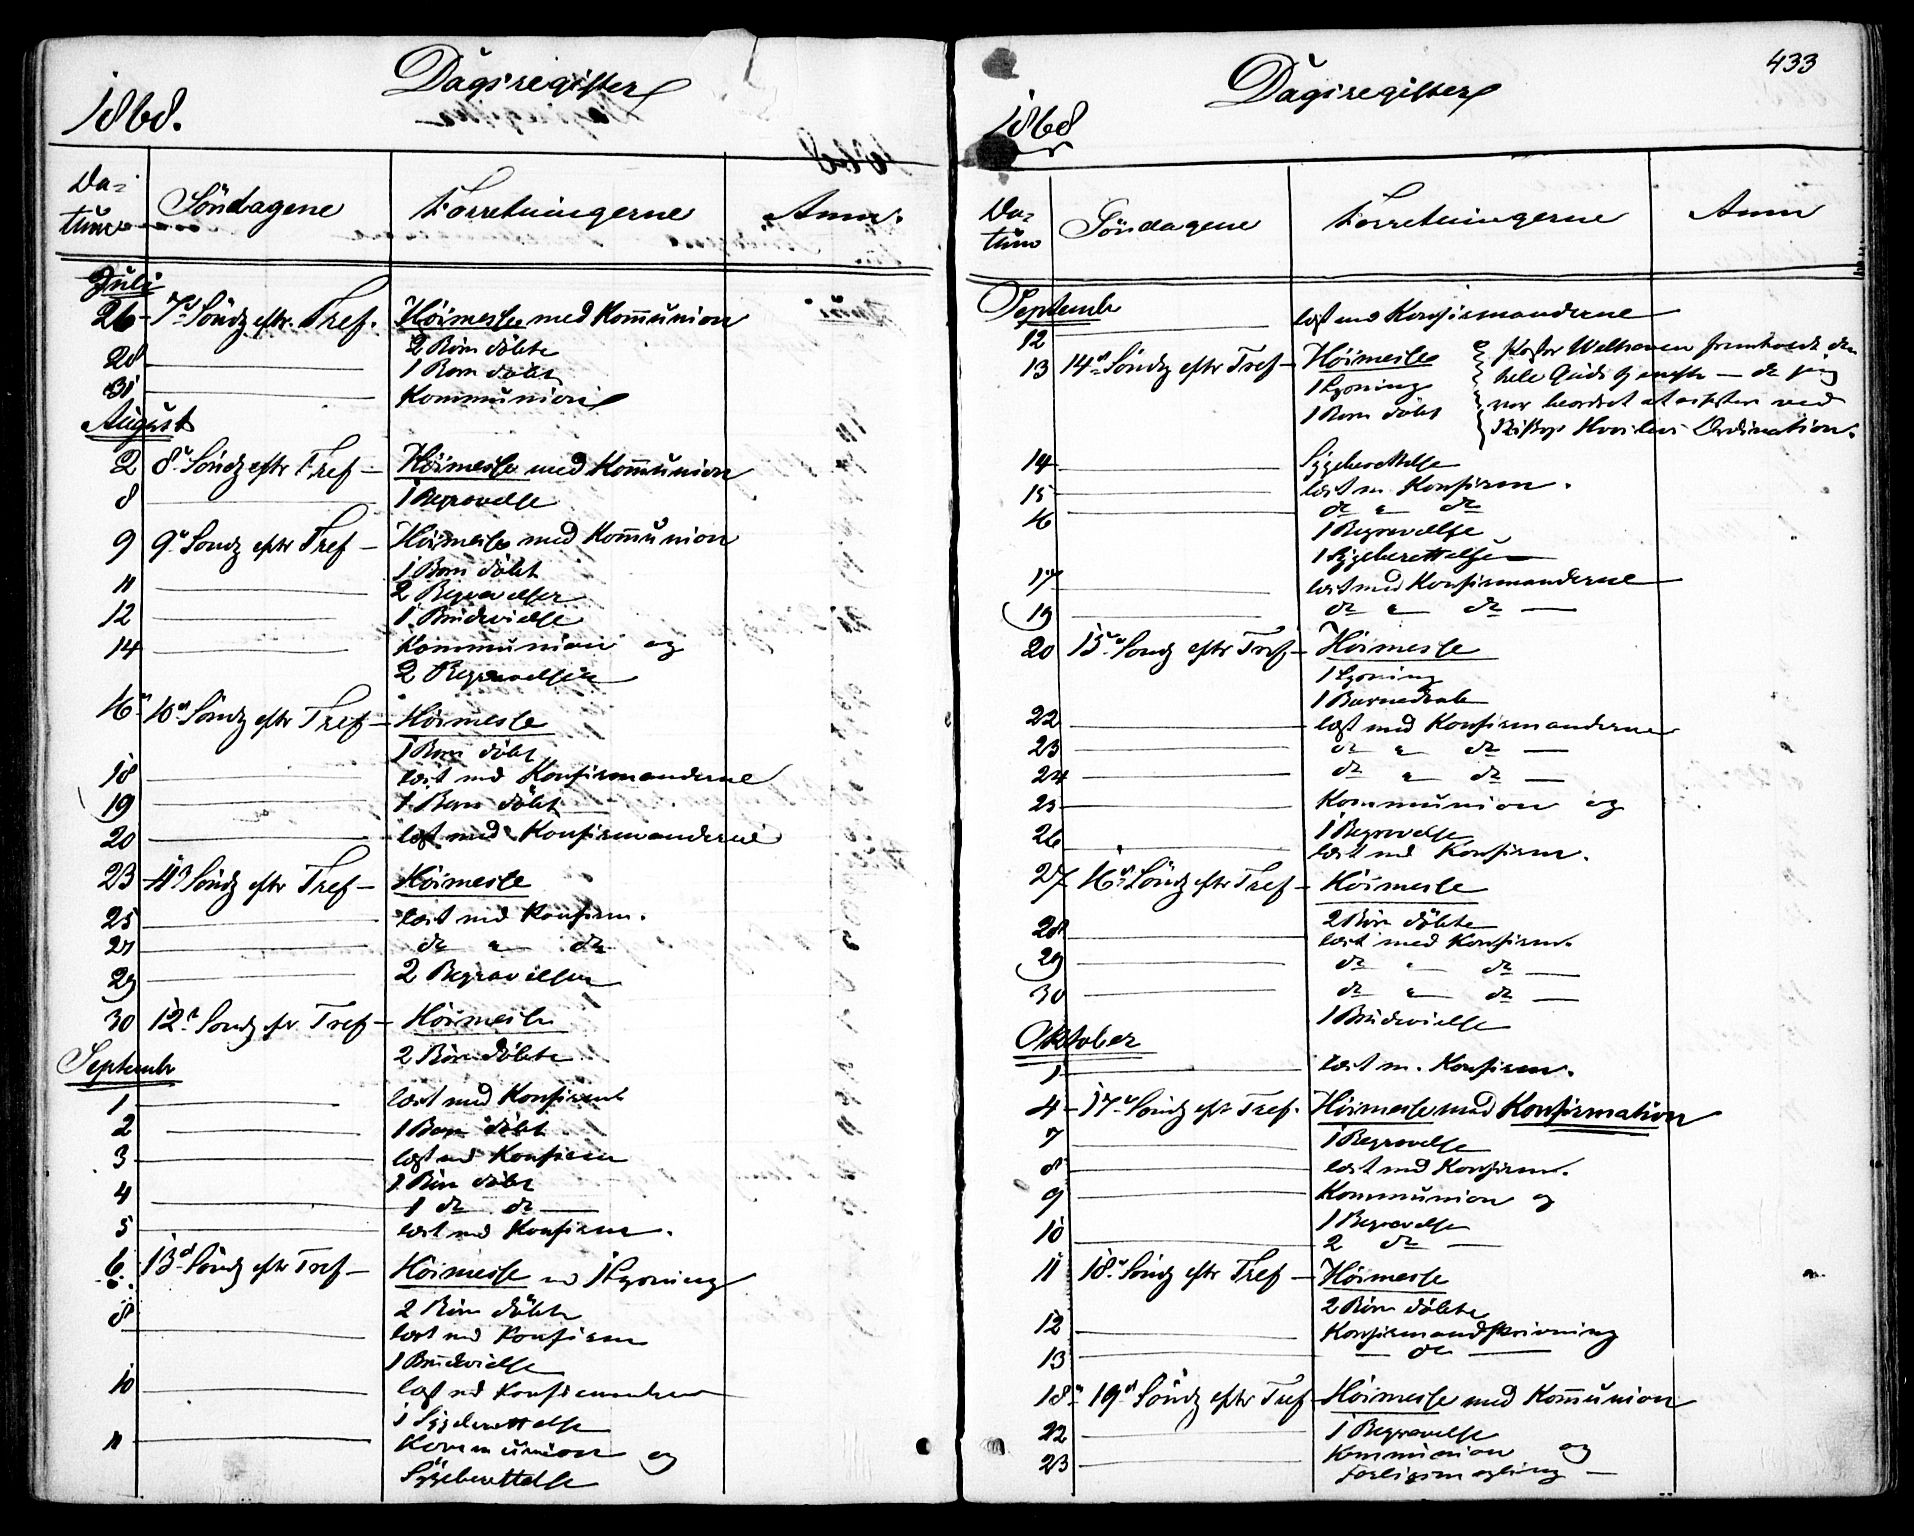 Dagsregister
1868.
Da-
tum Söndagene Forretningerne Anm.
Juli
26 - 7de Söndg eftr. Tref. Höimesse med Kommunion
2 Börn döbte
28 1 Barn döbt
31 Kommunion
August
2 8de Söndg eftr Tref - Höimesse med Kommunion
8 1 Begravelse
9 9de Söndg eftr Tref - Höimesse med Kommunion
1 Barn döbt
11 2 Begravelser
12 1 Brudevielse
14 Kommunion og
2 Begravelser
16 10de Söndg eftr Tref - Höimesse
1 Barn döbt
18 læst med Konfirmanderne
19 1 Barn döbt
20 læst med Konfirmanderne
23 11te Söndg eftr Tref - Höimesse
25 læst med Konfirm.
27 do " do
29 2 Begravelser
30 12te Söndg eftr Tref - Höimesse
2 Börn döbte
September
1 læst med Konfirm
2 1 Barn döbt
3 læst md Konfirm
1 Barn döbt
4 1 do do
5 læst md Konfirm.
6 13de Söndg eftr Tref - Höimesse md 1 Lysning
2 Börn döbte
8 læst md Konfirm
1 Brudevielse
10 læst md Konfirmanderne
1 Sygeberettelse
11 Kommunion og
Sygeberettelse
433
Dagsregister
1868
Da-
tum Söndagene Forretningerne Anm
September
12 læst med Konfirmanderne
13 14de Söndg eftr Tref - Höimesse Pastor Welhaven fremholdt den
1 Lysning hele Guds tjeneste - da jeg
1 Barn döbt var beordret at assistere ved
Biskop Ordination.
14 Sygeberettelse
15 læst m. Konfirm.
16 do " do
1 Begravelse
1 Sygeberettelse
17 læst med Konfirmanderne
19 do " do -
20 15de Söndg eftr Tref - Höimesse
1 Lysning
1 Barnedaab
22 læst med Konfirmanderne
23 do " do -
24 do " do -
25 Kommunion og
1 Begravelse
26 læst md Konfirm.
27 16de Söndg eftr Tref - Höimesse
2 Börn döbte
28 læst med Konfirm.
29 do " do -
30 do " do -
1 Brudevielse
Oktober
1 læst m. Konfirm.
4 - 17de Söndg eftr Tref. Höimesse med Konfirmation
7 1 Begravelse
8 læst md Konfirm.
9 Kommunion og
1 Begravelse
10 2 do -
11 18de Söndg eftr Tref - Höimesse
2 Börn döbte
12 Konfirmandskrivning
13 - do -
18 19de Söndg eftr Tref Höimesse med Kommunion
22 1 Begravelse
23 Kommunion og
Forligsmegling -